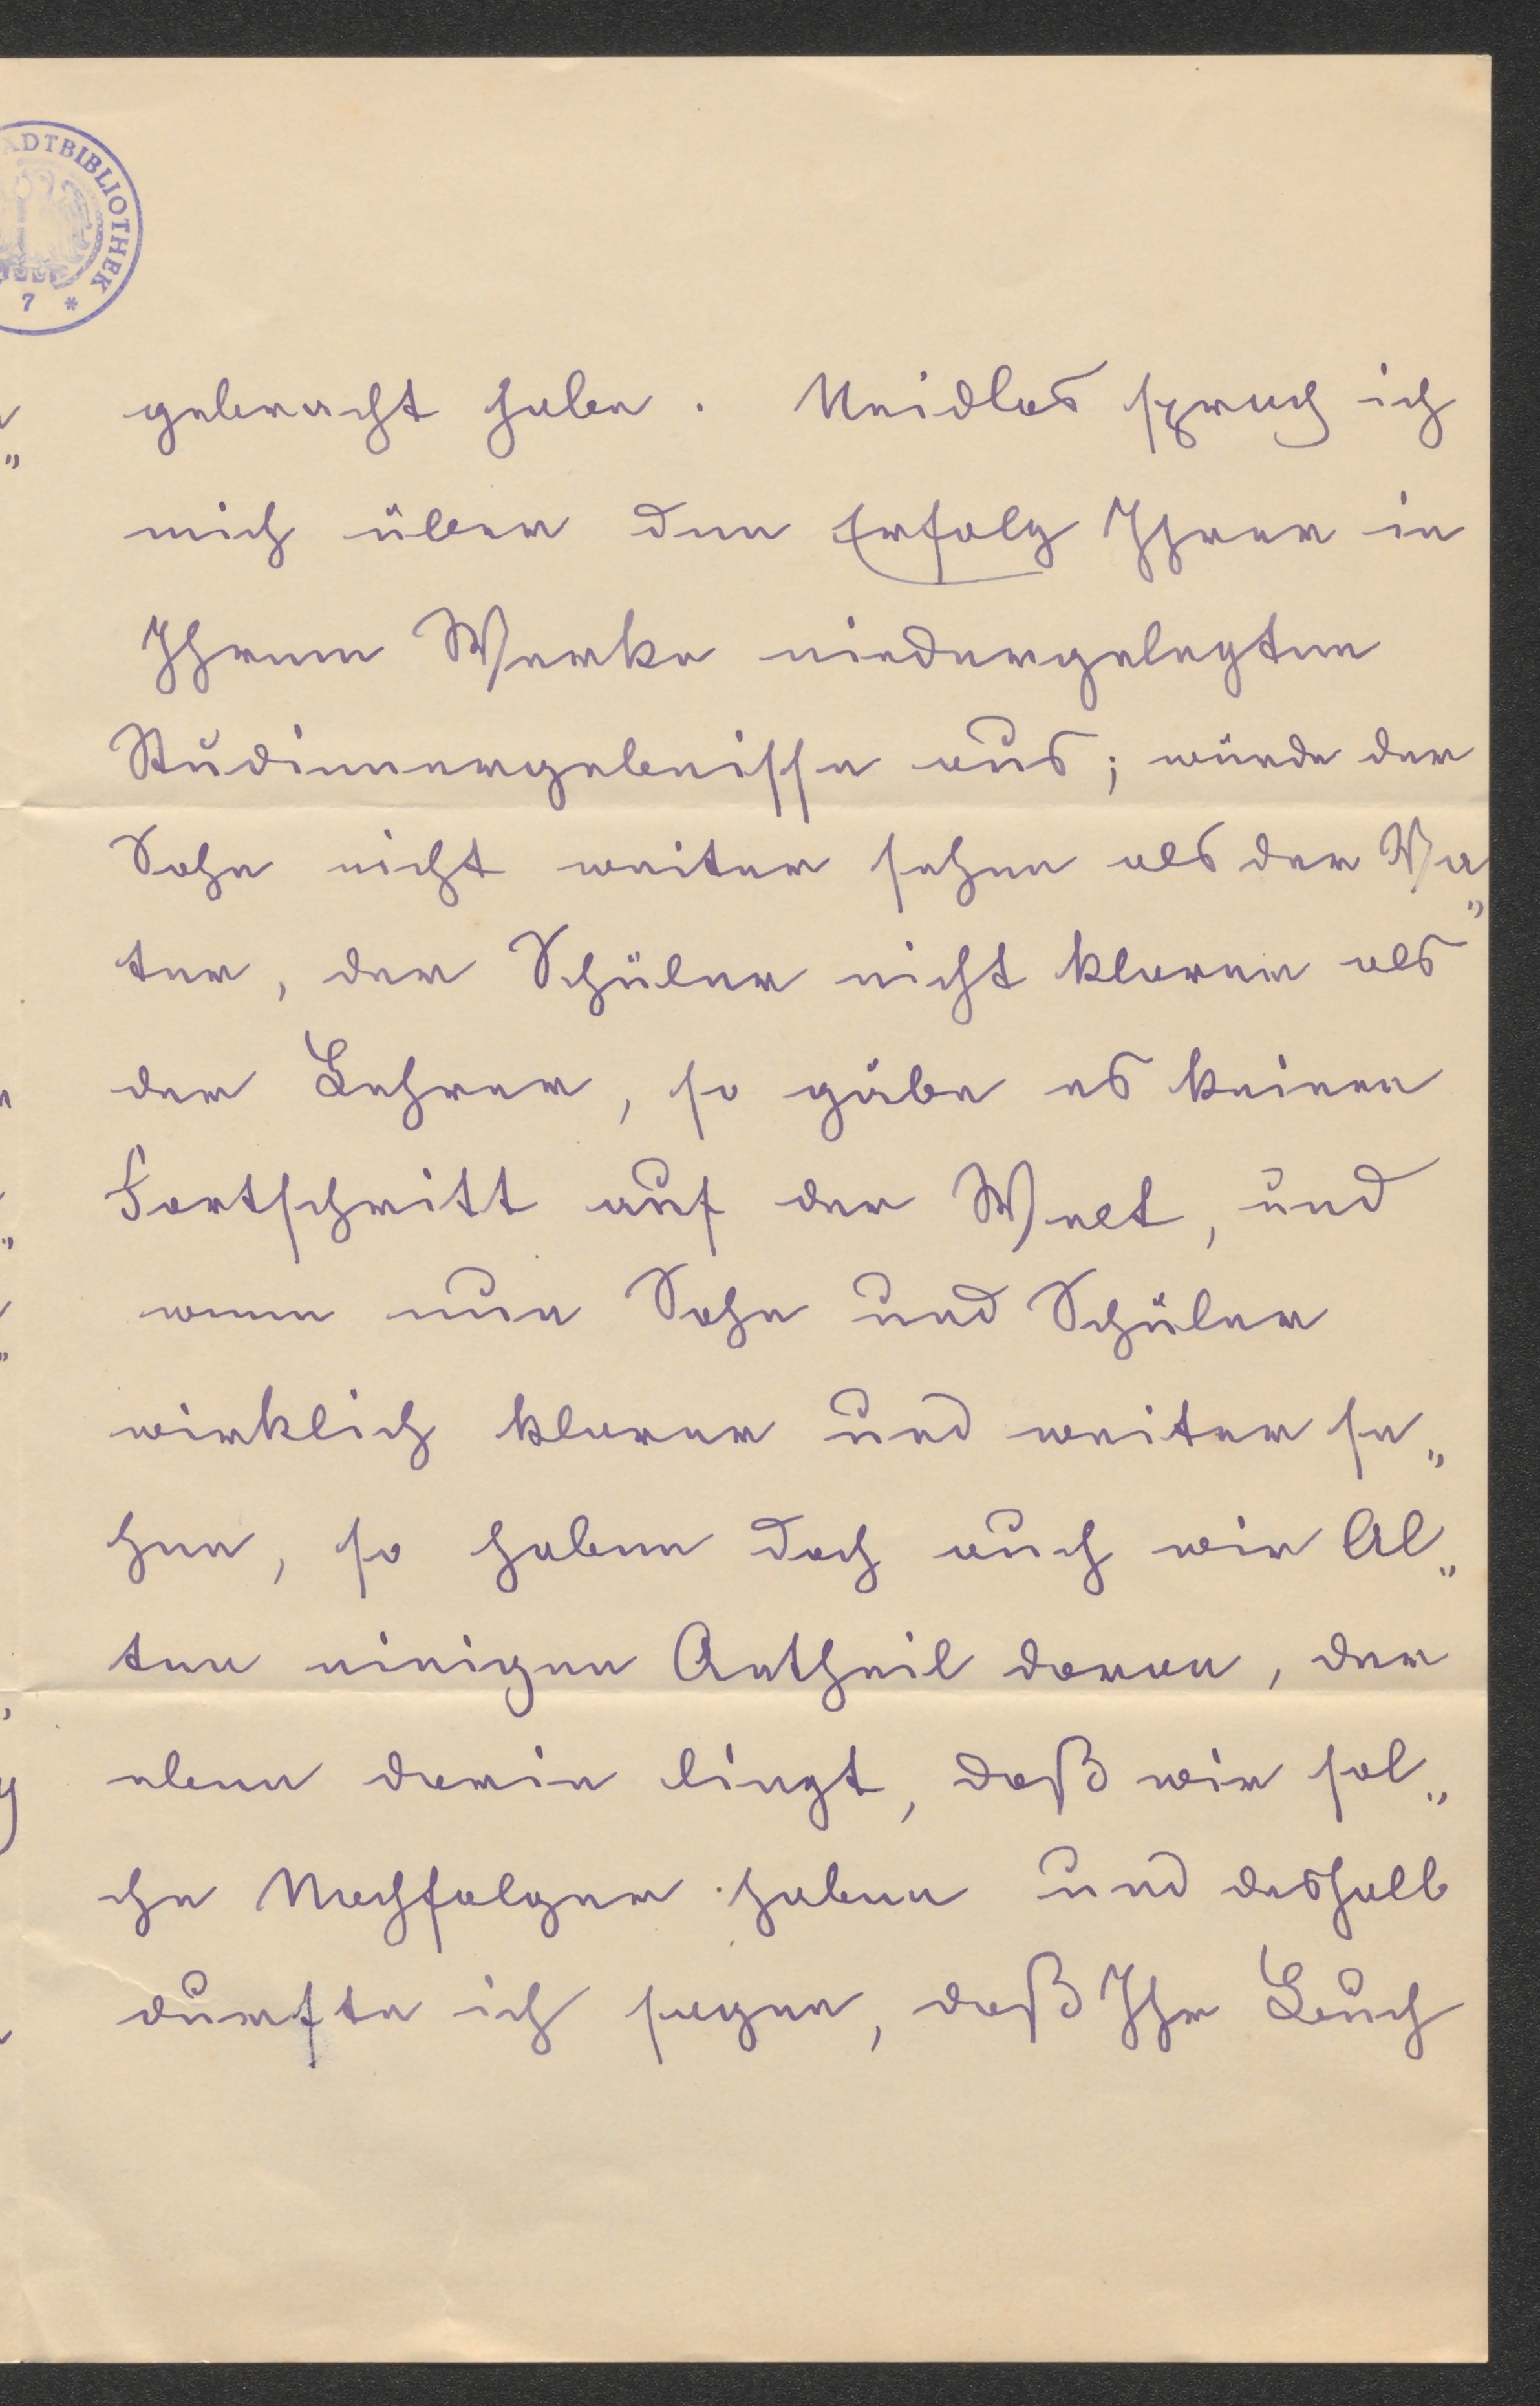 ADTBIBLIOTHEK
7 *
gebracht habe. Neidlos sprach ich
mich über den Erfolg Ihrer in
Ihrem Werke niedergelegten
Studienergebnisse aus; würde der
Sohn nicht weiter sehen als der Va„
ter, der Schüler nicht klarer als
der Lehrer, so gäbe es keinen
Fortschritt auf der Welt, und
wenn nun Sohn und Schüler
wirklich klarer und weiter se„
hen, so haben doch auch wir Al„
ten einigen Antheil daran, der
eben darin liegt, daß wir sol„
che Nachfolger haben und deshalb
durfte ich sagen, daß Ihr Buch